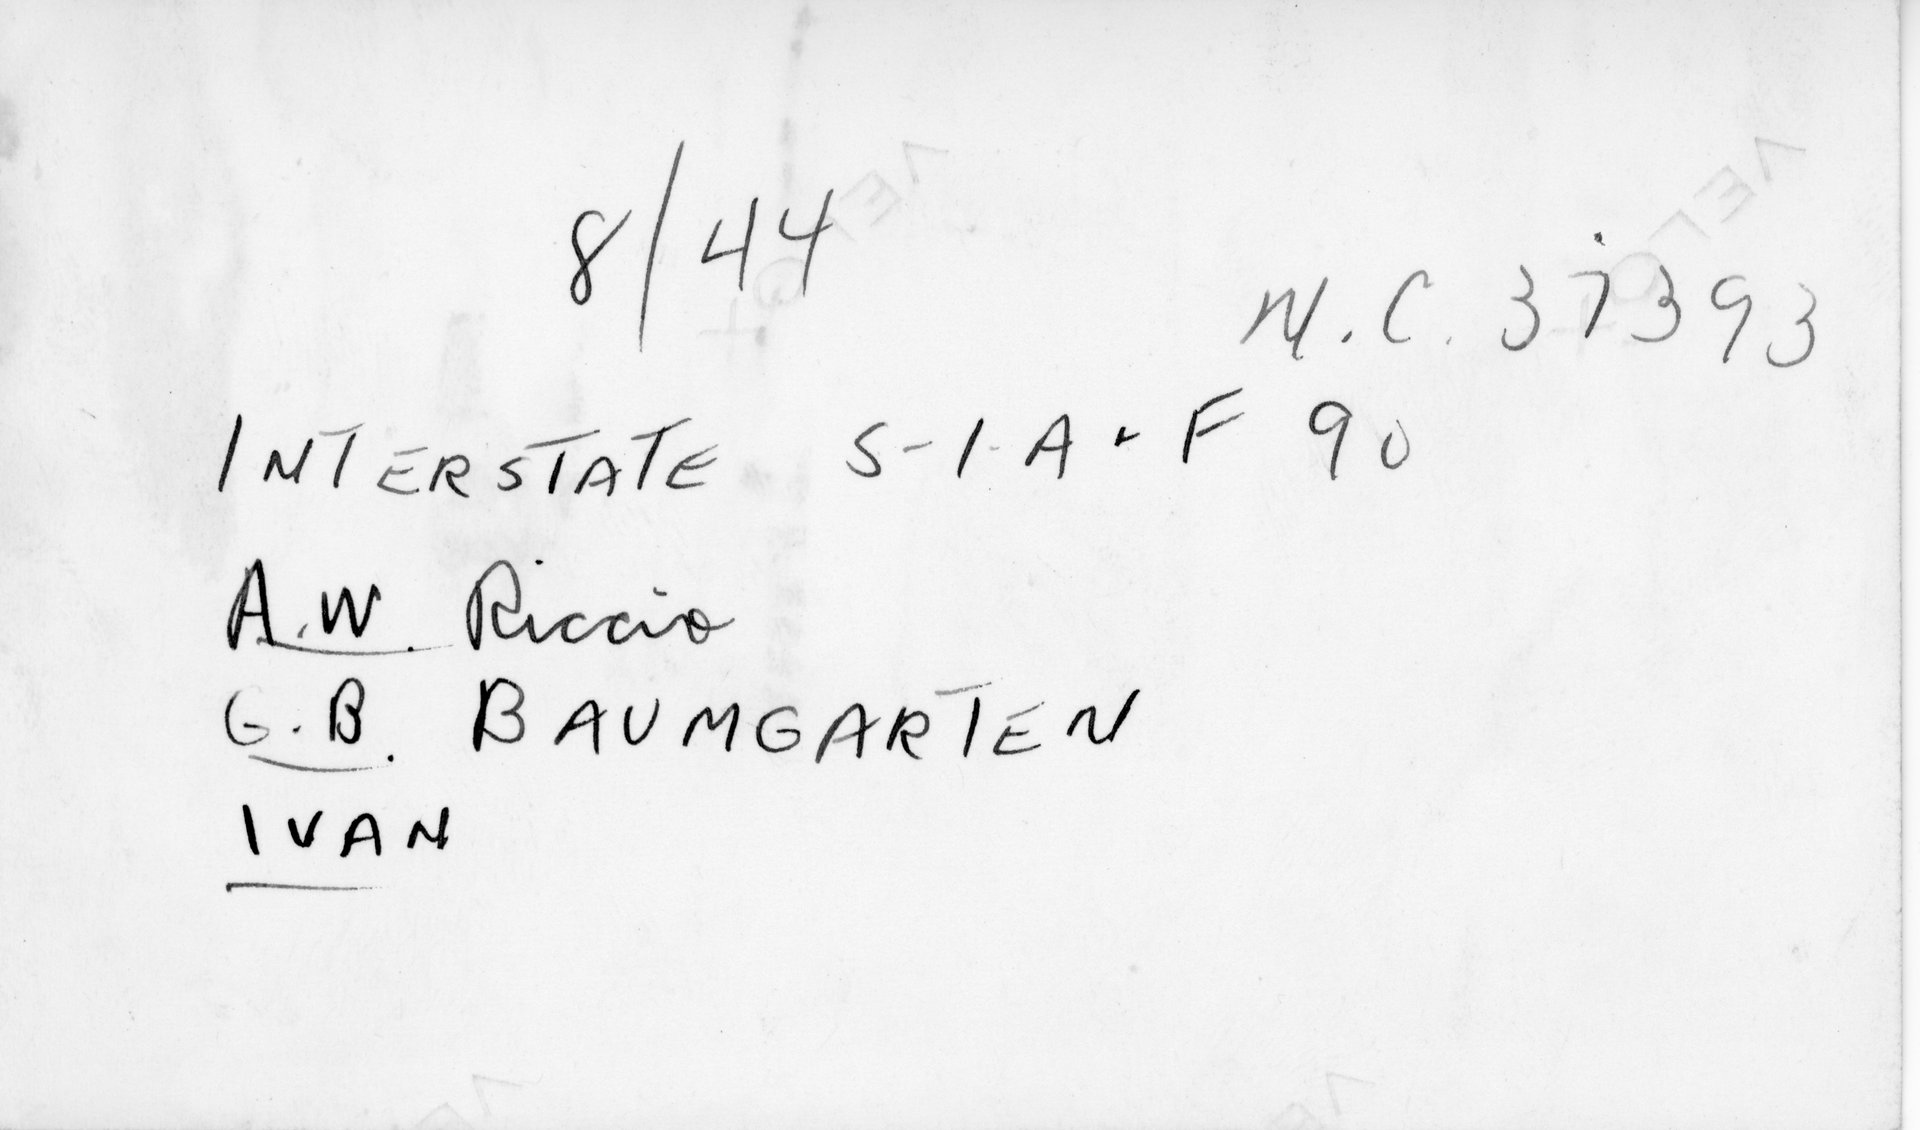 8/44
N.C. 37393
INTERSTATE S-1-A-F 90
A.W. Riccio
G.B. BAUMGARTEN
IVAN